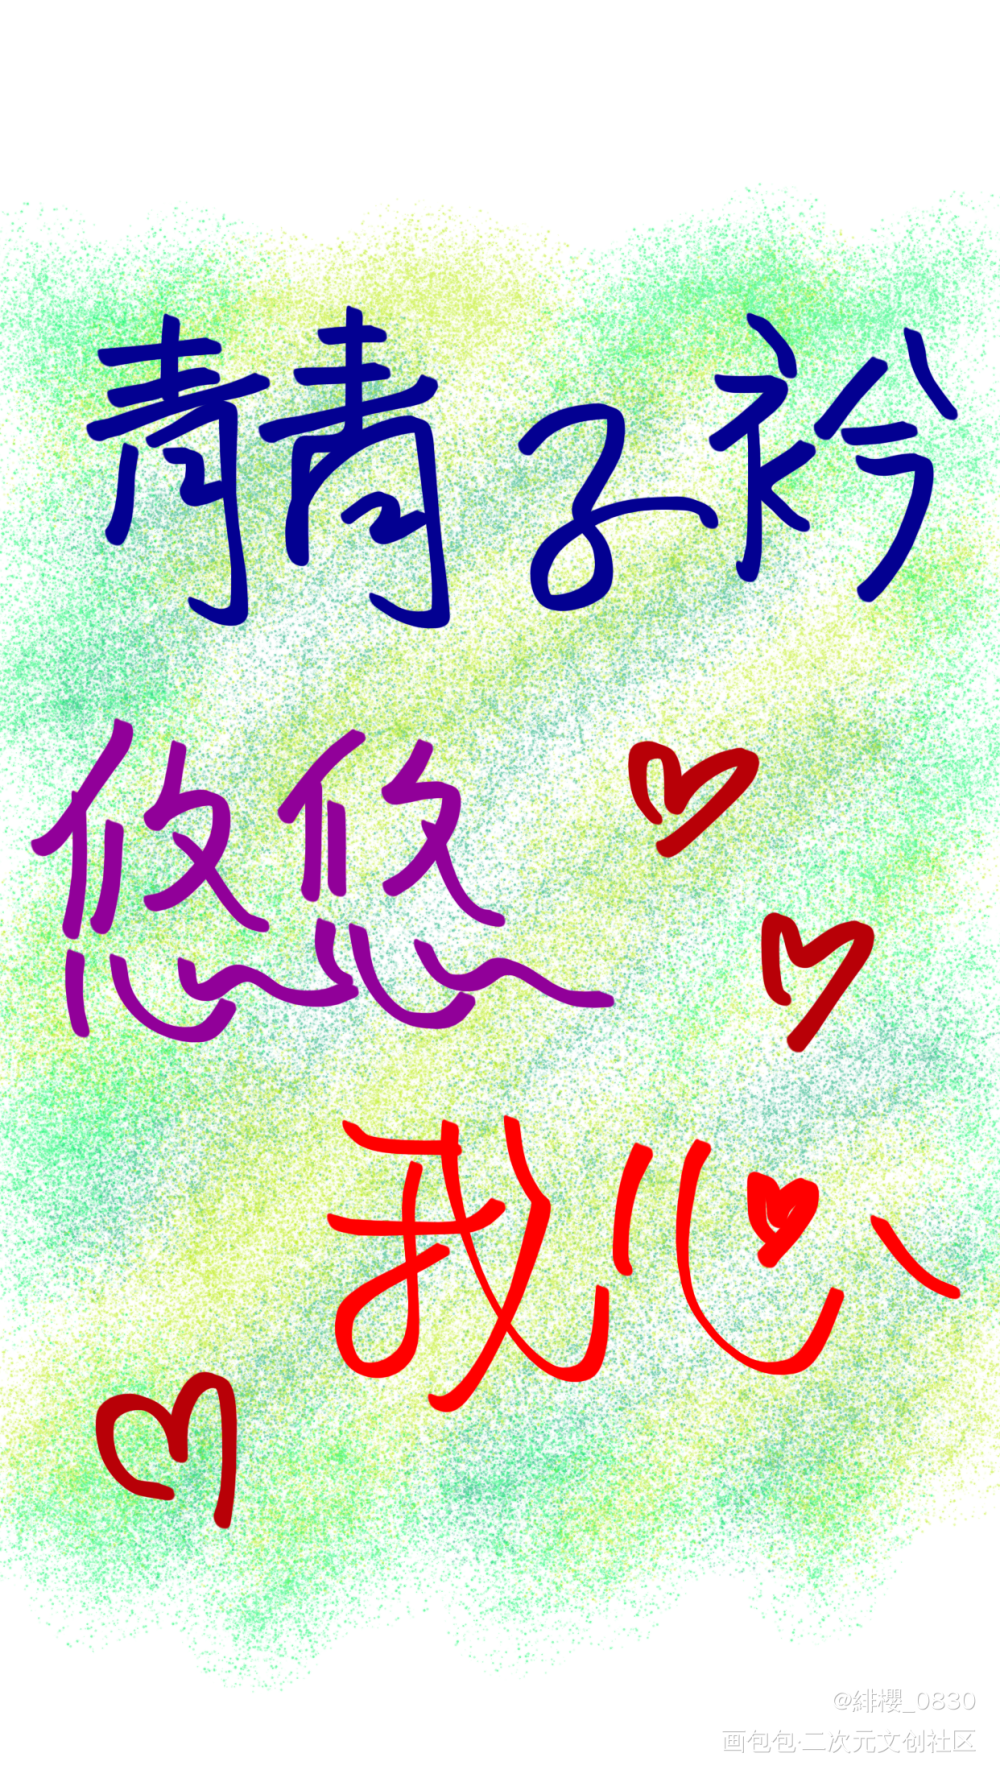 青青子衿
悠悠
我心
@緋櫻_0830
画包包·二次元文创社区